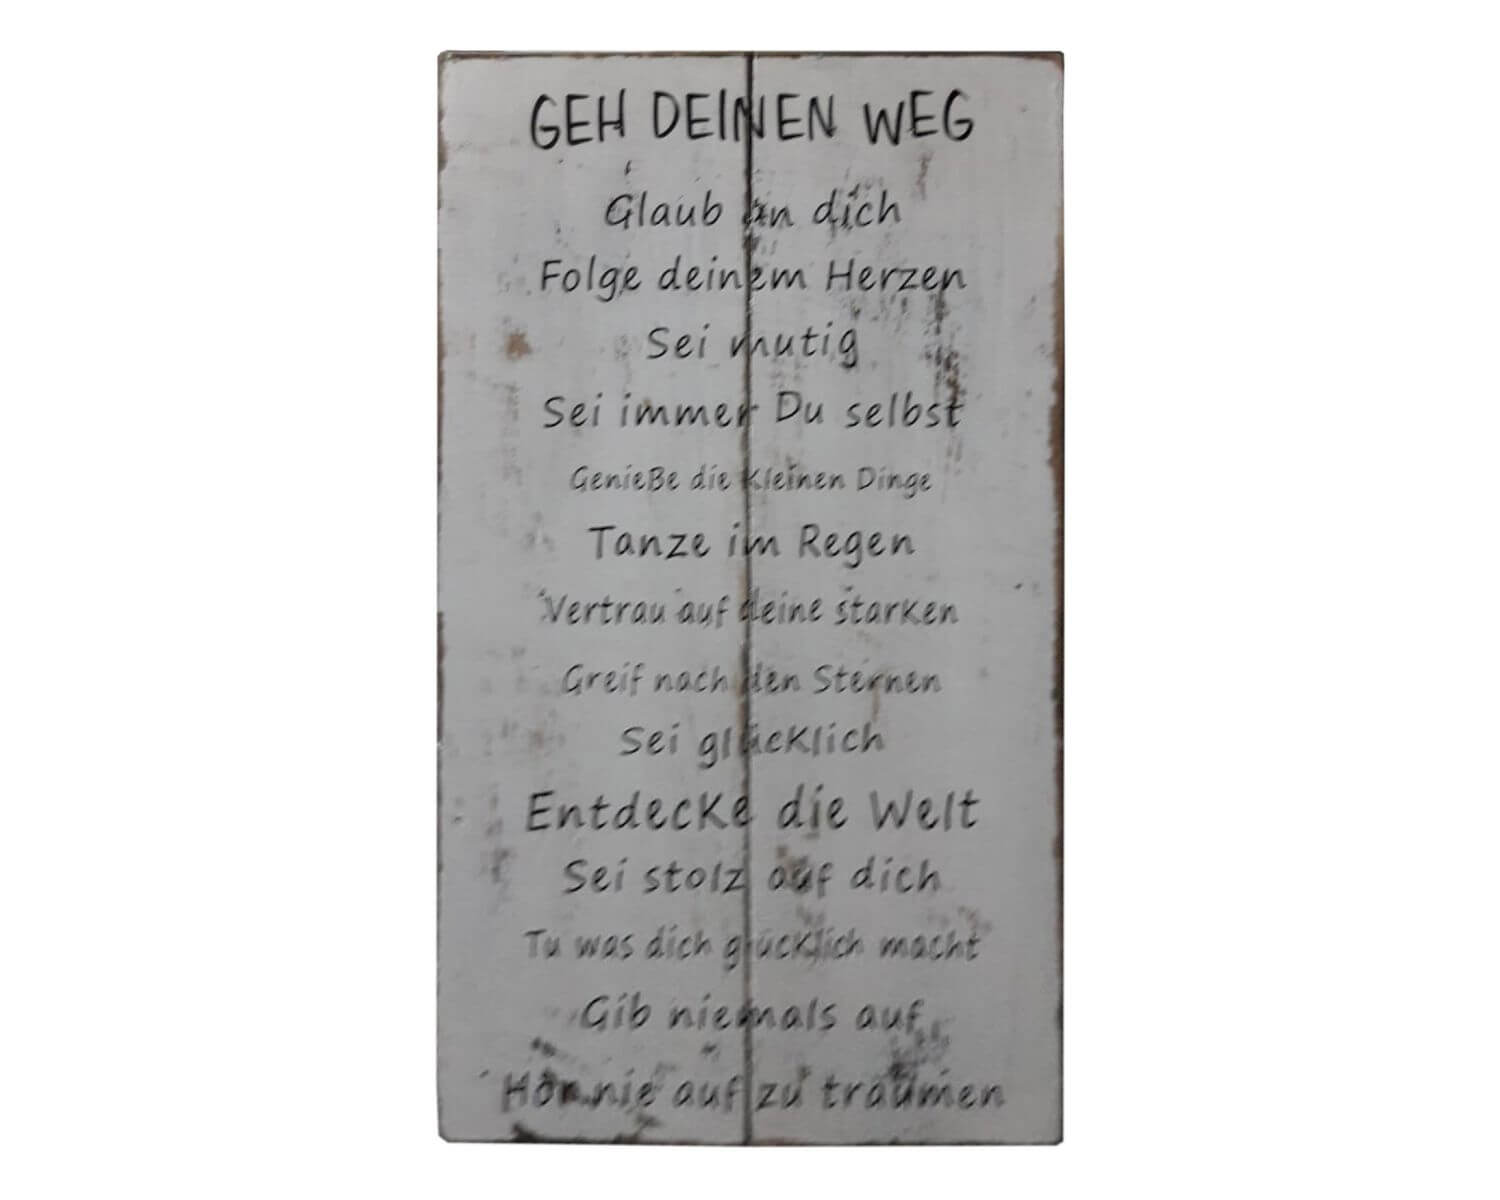 GEH DEINEN WEG
Glaub an dich
Folge deinem Herzen
Sei mutig
Sei immer Du selbst
Genieße die kleinen Dinge
Tanze im Regen
Vertrau auf deine starken
Greif nach den Sternen
Sei glücklich
Entdecke die Welt
Sei stolz auf dich
Tu was dich glücklich macht
Gib niemals auf
Hör nie auf zu träumen